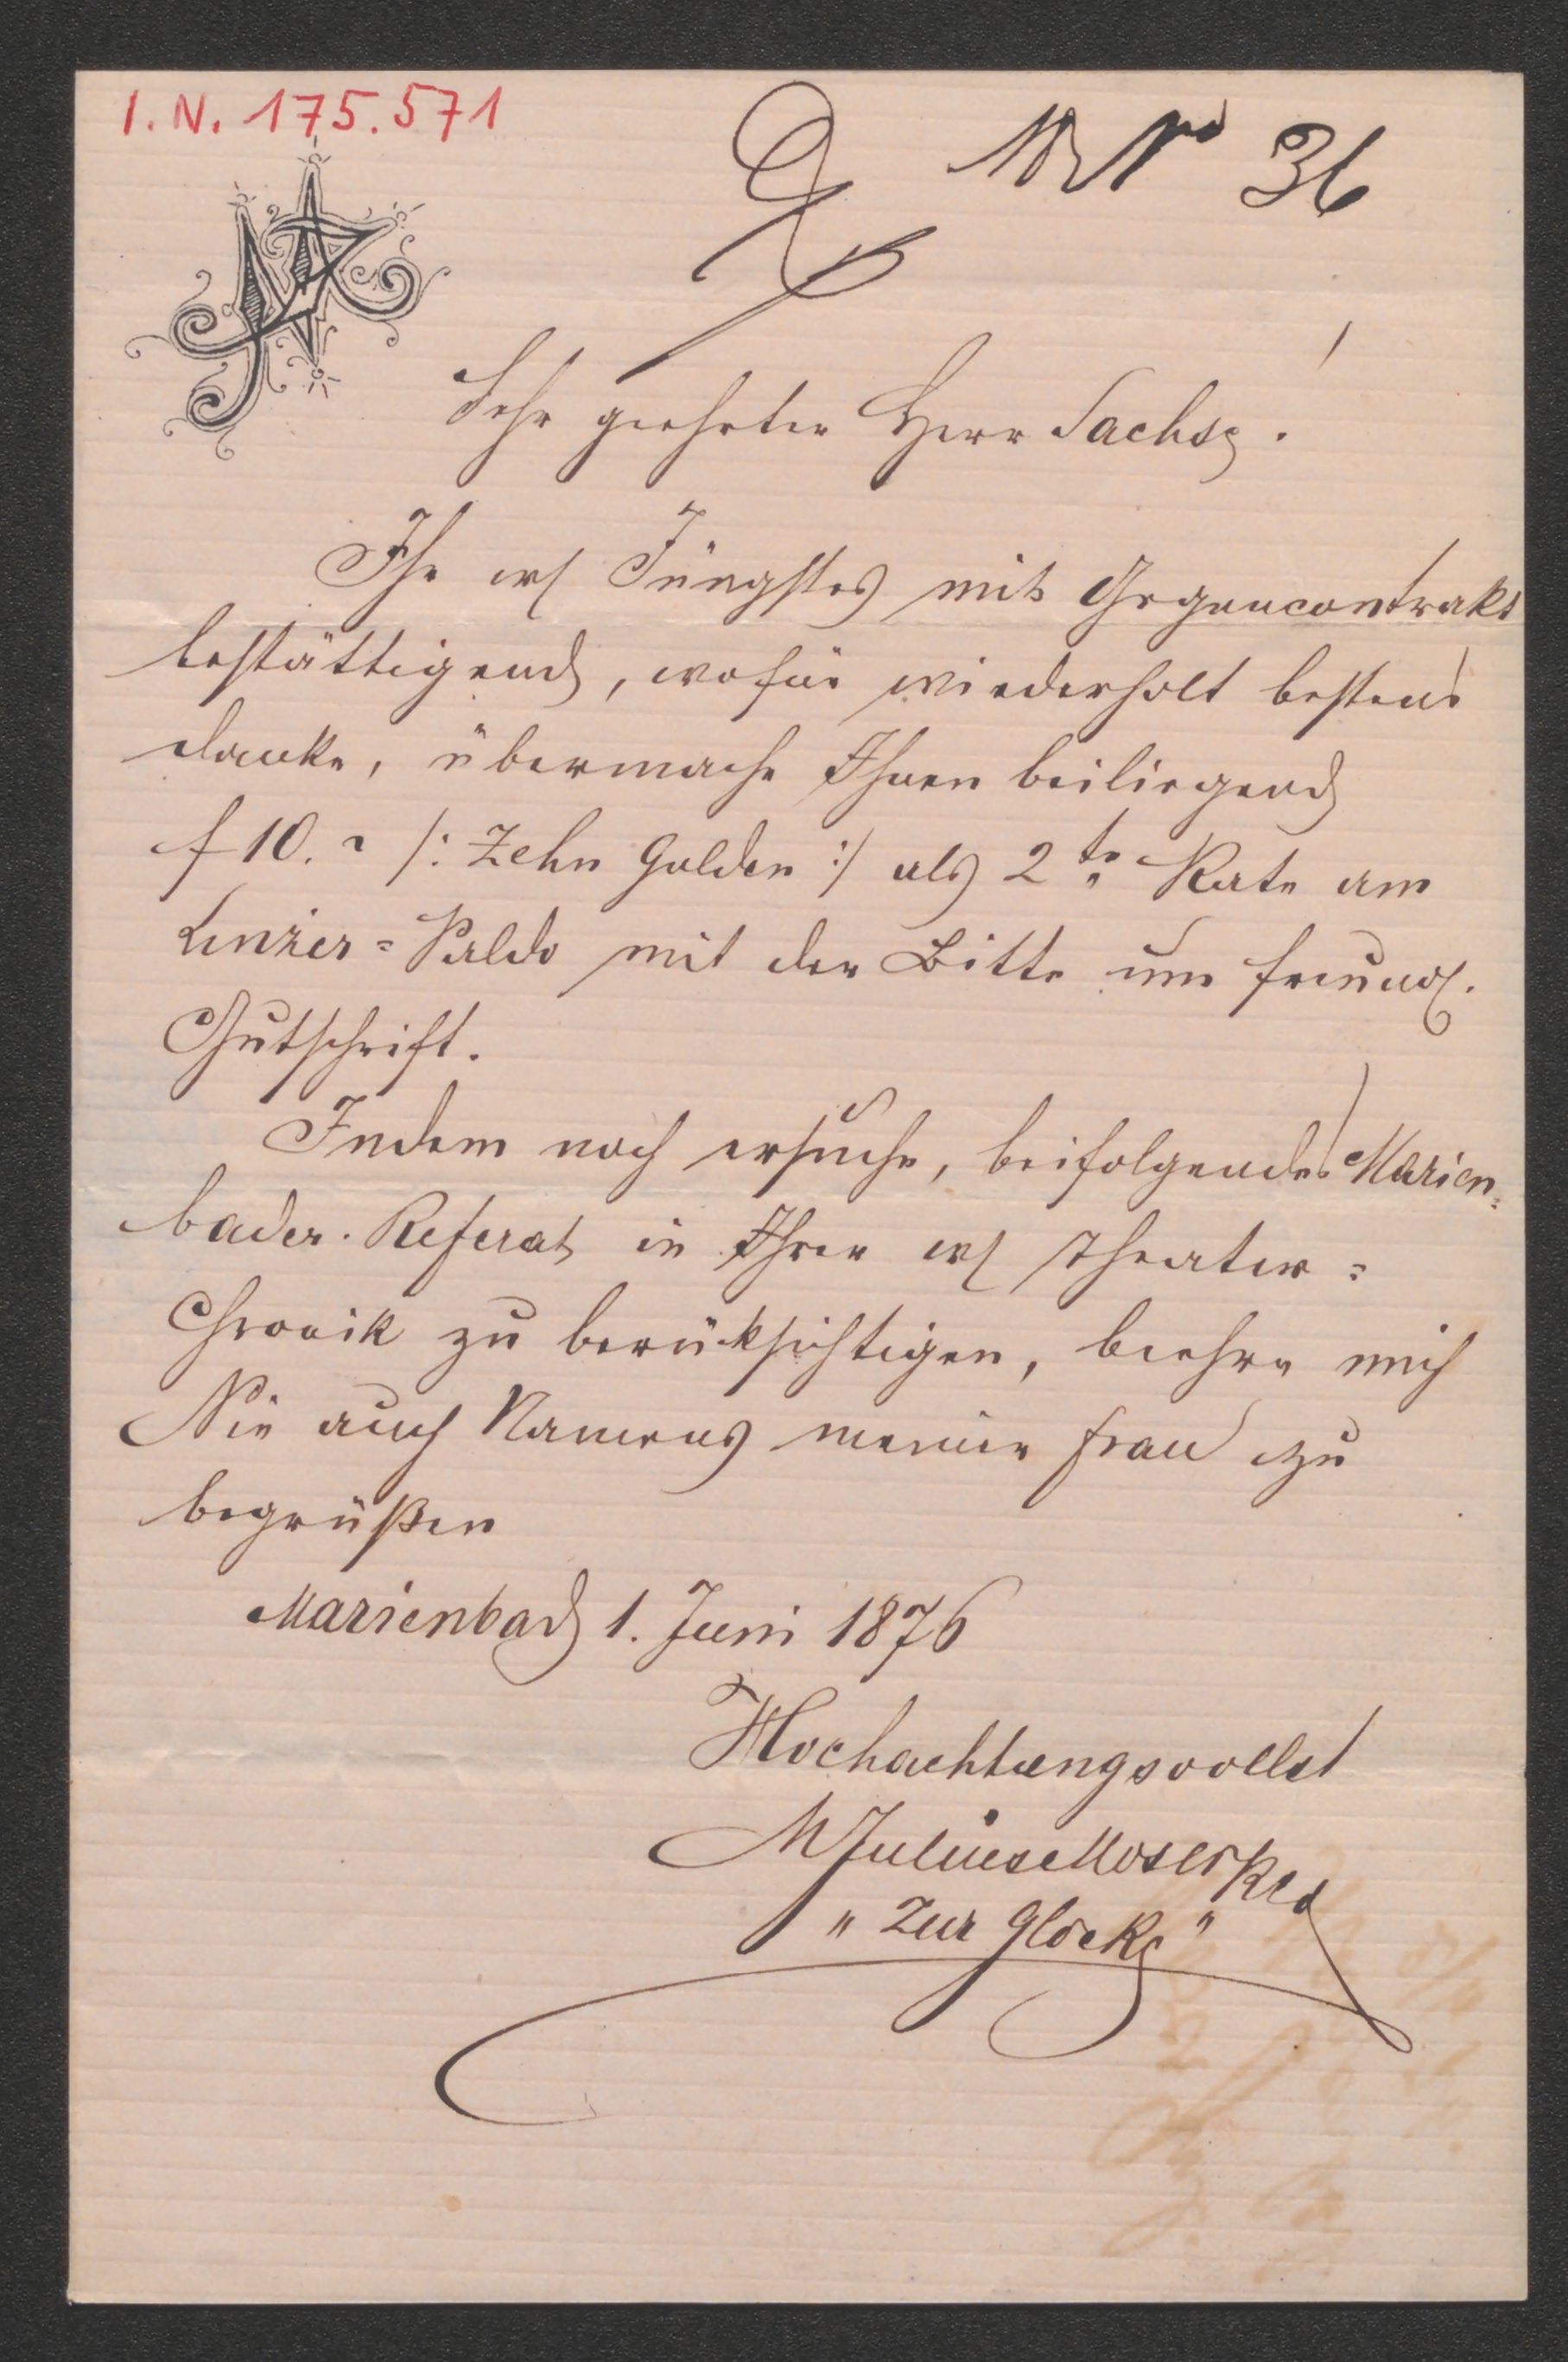 I.N. 175.571
No 36
Sehr geehrter Herr Sachse!
Ihr w/ Jüngstes mit Gegencontrakt
bestättigend, wofür wiederholt bestens
danke, übermache Ihnen beiliegend
f 10.- /: Zehn Gulden :/ als 2te Rate am
Linzer-Saldo mit der Bitte um freundl.
Gutschrift.
Indem noch ersuche, beifolgendes Marien-
bader-Referat in Ihrer w/ Theater-
Chronik zu berüksichtigen, beehre mich
Sie auch Namens meiner Frau zu
begrüßen
Marienbad 1. Juni 1876
Hochachtungsvollst
Julius Moser
"Zur Glocke"